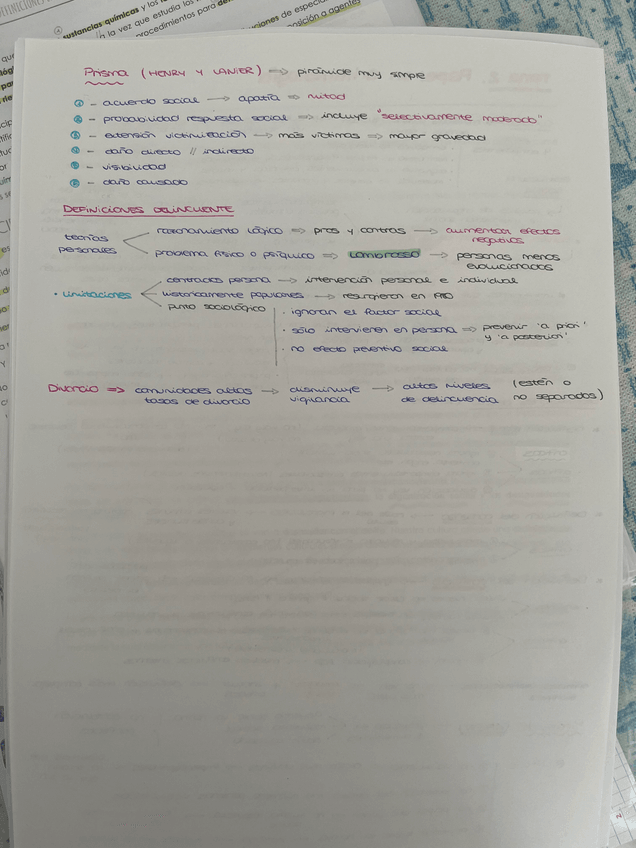 sustancias químicas y los
la vez que estudia los
procedimientos para
ciones de especial
posición a agentes
Prisma (HENRY Y LANIER) => pirámide muy simple
1 - acuerdo social -> apatía => mitad
2 - probabilidad respuesta social => incluye "selectivamente moderado"
3 - extensión victimización -> más víctimas => mayor gravedad
4 - daño directo // indirecto
5 - visibilidad
6 - daño causado
DEFINICIONES DELINCUENTE
teorías personales
razonamiento lógico => pros y contras -> aumentar efectos negativos
problema físico o psíquico => Lombrosso -> personas menos evolucionados
• Limitaciones
centradas persona -> intervención personal e individual
históricamente populares -> resurgieron en
punto sociológico
· ignoran el factor social
· sólo intervienen en persona => prevenir 'a priori' y 'a posteriori'
· no efecto preventivo social
Divorcio => comunidades altas tasas de divorcio -> disminuye vigilancia -> altos niveles de delincuencia (estén o no separados)